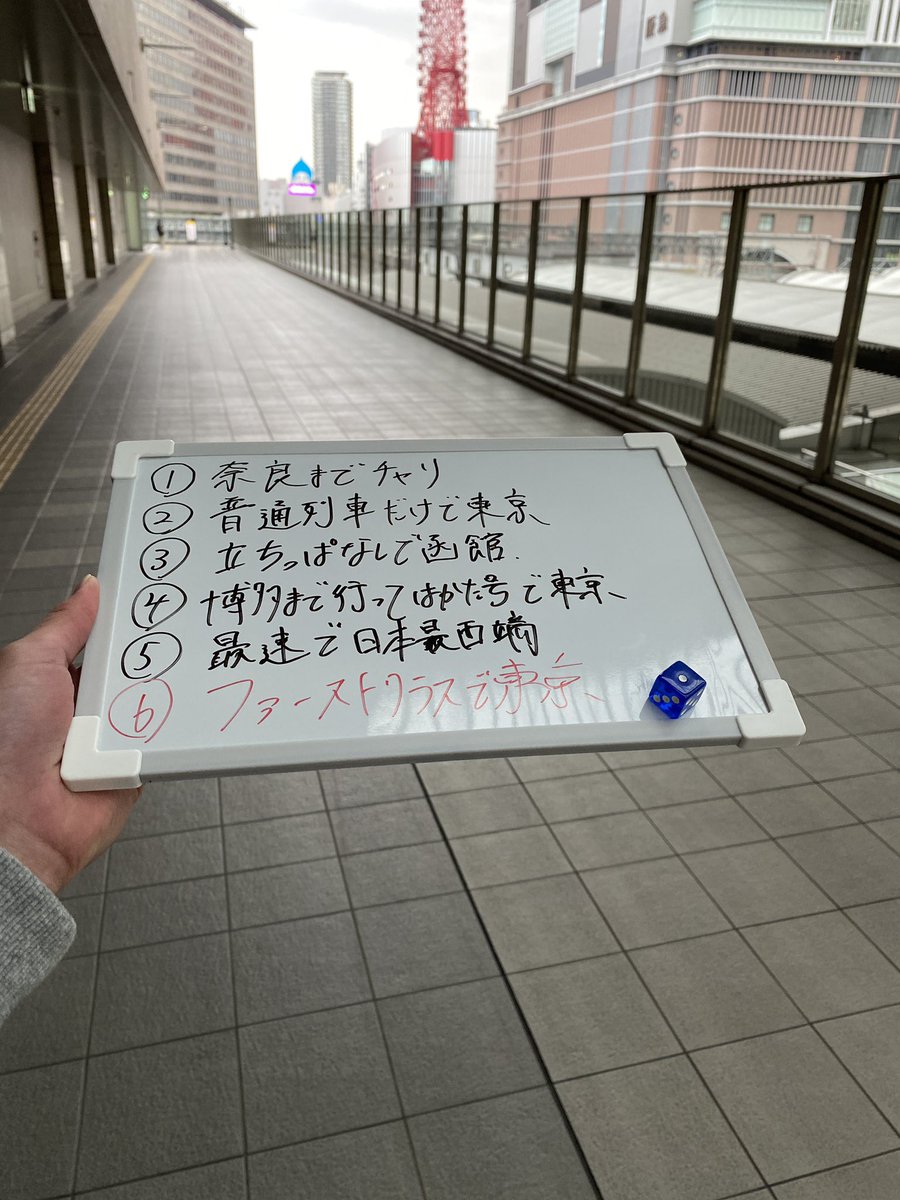 阪急
① 奈良までチャリ
② 普通列車だけで東京
③ 立ちっぱなしで函館.
④ 博多まで行ってはかた号で東京、
⑤ 最速で日本最西端
⑥ ファーストクラスで東京、